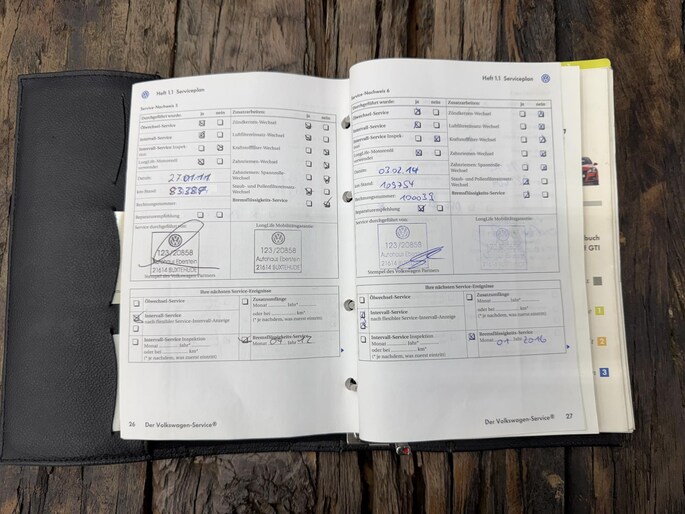 Heft 1.1 Serviceplan
Service-Nachweis 5
Durchgeführt wurde: ja nein
Ölwechsel-Service
Intervall-Service
Intervall-Service Inspektion
LongLife-Motorenöl verwendet
Datum: 27.01.11
km-Stand: 83387
Rechnungsnummer:
Reparaturempfehlung
Zusatzarbeiten: ja nein
Zündkerzen-Wechsel
Luftfiltereinsatz-Wechsel
Kraftstofffilter-Wechsel
Zahnriemen-Wechsel
Zahnriemen-Spannrolle-
Wechsel
Staub- und Pollenfiltereinsatz-
Wechsel
Bremsflüssigkeits-Service
Service durchgeführt von:
123/20858
Autohaus Eberstein
21614 BUXTEHUDE
Stempel des Volkswagen Partners
LongLife Mobilitätsgarantie
123/20858
Autohaus Eberstein
21614 BUXTEHUDE
Ihre nächsten Service-Ereignisse
Ölwechsel-Service
Intervall-Service
nach flexibler Service-Intervall-Anzeige
Intervall-Service Inspektion
Monat Jahr*
oder bei km*
(* je nachdem, was zuerst eintritt)
Zusatzumfänge
Monat Jahr*
oder bei km*
(* je nachdem, was zuerst eintritt)
Bremsflüssigkeits-Service
Monat 01 Jahr 12
26 Der Volkswagen-Service®
Heft 1.1 Serviceplan
Service-Nachweis 6
Durchgeführt wurde: ja nein
Ölwechsel-Service
Intervall-Service
Intervall-Service Inspektion
LongLife-Motorenöl verwendet
Datum: 03.02.14
km-Stand: 105754
Rechnungsnummer: 100039
Reparaturempfehlung
Zusatzarbeiten: ja nein
Zündkerzen-Wechsel
Luftfiltereinsatz-Wechsel
Kraftstofffilter-Wechsel
Zahnriemen-Wechsel
Zahnriemen-Spannrolle-
Wechsel
Staub- und Pollenfiltereinsatz-
Wechsel
Bremsflüssigkeits-Service
Service durchgeführt von:
123/20858
Autohaus Eberstein
21614 BUXTEHUDE
Stempel des Volkswagen Partners
LongLife Mobilitätsgarantie
Ihre nächsten Service-Ereignisse
Ölwechsel-Service
Intervall-Service
nach flexibler Service-Intervall-Anzeige
Intervall-Service Inspektion
Monat Jahr*
oder bei km*
(* je nachdem, was zuerst eintritt)
Zusatzumfänge
Monat Jahr*
oder bei km*
(* je nachdem, was zuerst eintritt)
Bremsflüssigkeits-Service
Monat 01 Jahr 2016
Der Volkswagen-Service® 27
buch
f GTI
1
2
3